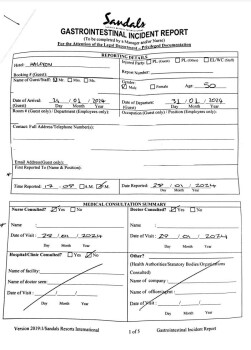 Sandals
GASTROINTESTINAL INCIDENT REPORT
(To be completed by a Manager and/or Nurse)
For the Attention of the Legal Department - Privileged Documentation
REPORTING DETAILS
Hotel: HALCYON
Injured Party: PL (Guest) PL (Other) EL/WC (Staff)
Booking # (Guest):
Report Number:
Name of Guest/Staff: Mr. Mrs. Ms.
Gender:
Male Female Age: 50
Date of Arrival: 24 / 01 / 2024
(Guest only) Day Month Year
Date of Departure: 31 / 01 / 2024
(Guest only) Day Month Year
Room # (Guest only) / Department (Employees only):
Occupation (Guest only) / Position (Employees only):
Contact: Full Address/Telephone Number(s):
Email Address (Guest only):
First Reported To (Name & Position):
Time Reported: 17 : 08 A.M. P.M.
Date Reported: 28 / 01 / 2024
Day Month Year
MEDICAL CONSULTATION SUMMARY
Nurse Consulted? Yes No
Doctor Consulted? Yes No
Name :
Name :
Date of Visit : 28 / 01 / 2024
Day Month Year
Date of Visit : 28 / 01 / 2024
Day Month Year
Hospital/Clinic Consulted? Yes No
Name of facility:
Name of doctor seen:
Date of Visit :
Day Month Year
Other?
(Health Authorities/Statutory Bodies/Organizations
Consulted)
Name of company :
Name of officer/agent :
Date of Visit :
Day Month Year
Version 2019.1/Sandals Resorts International
1 of 5
Gastrointestinal Incident Report